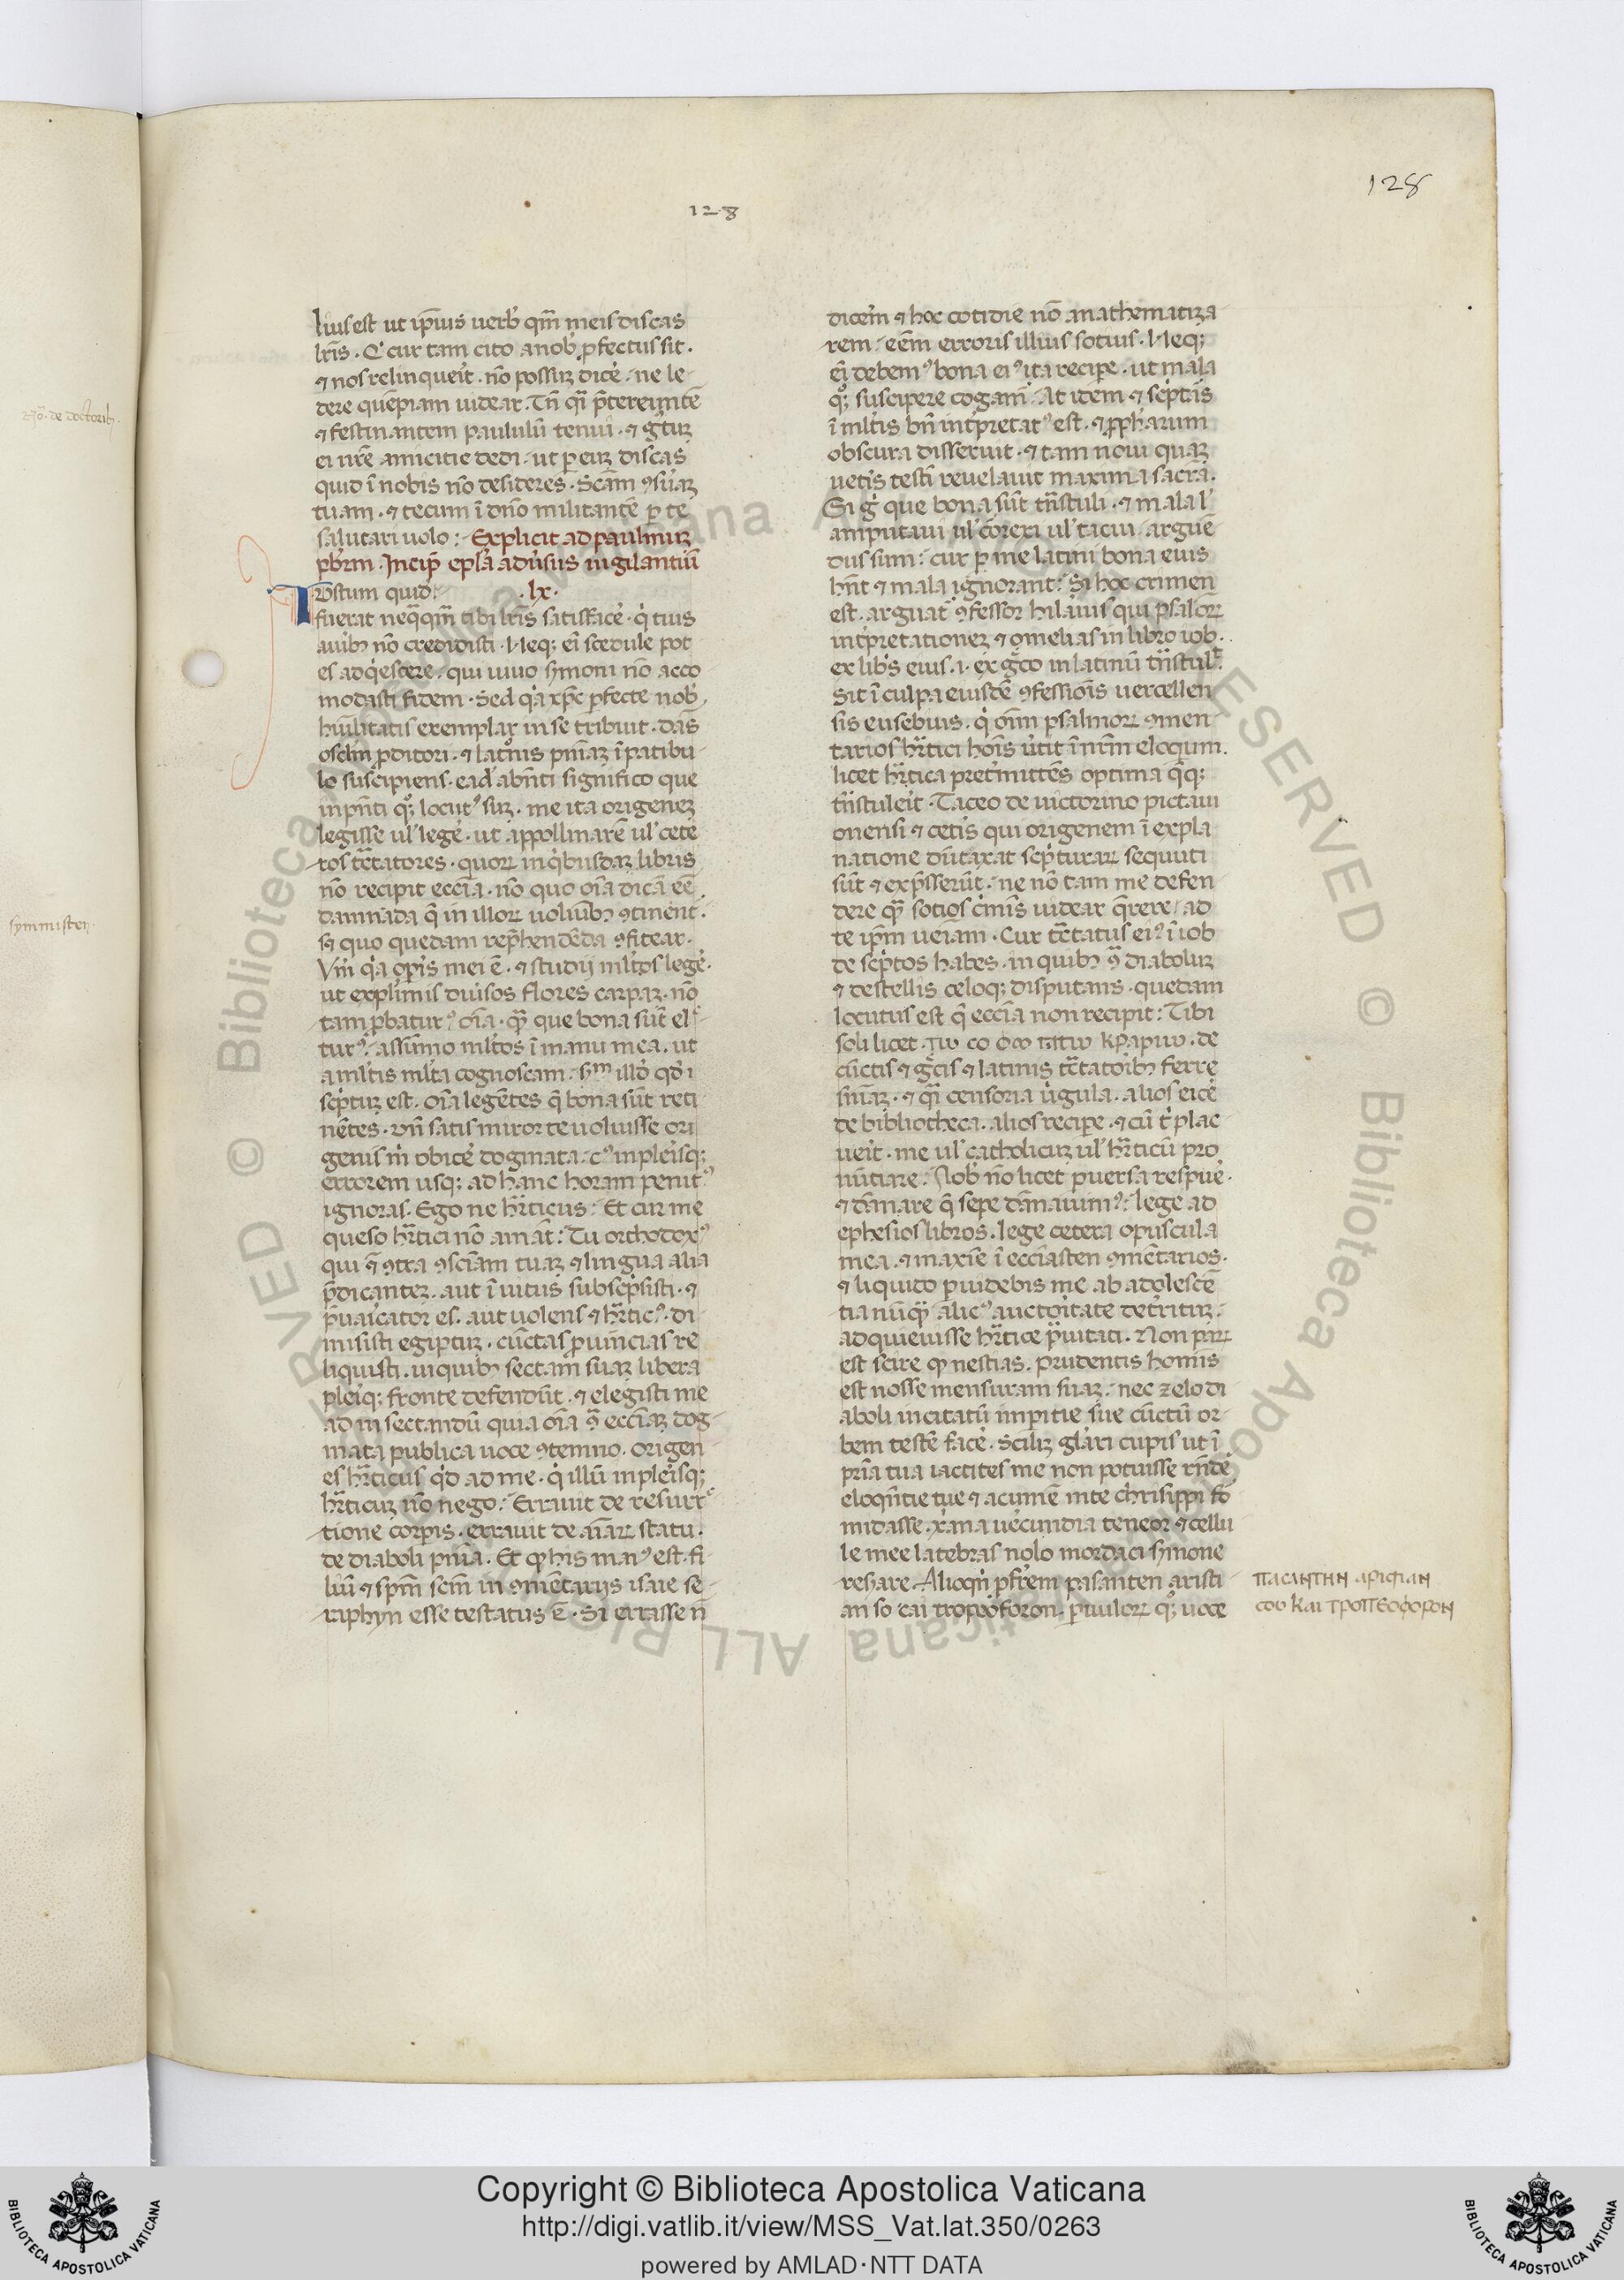 128
128
lius est ut ip̄ius uerb̓ qm̄ meis discas
lr̄is · Q cur tam cito a nob̓ ꝓfectus sit ·
⁊ nos relinqueīt · nō possuꝫ dicē · ne le
dere quēpiam uidear · Tn̄ qī p̄tereuntē
⁊ festinantem paululū tenui · ⁊ gͥtuꝫ
ei nr̄e amicitie dedi · ut ꝑ euꝫ discas
quid ī nobis nō desideres · Scām ꝯsͣuaꝫ
tuam · ⁊ tecum ī dn̄o militantē ꝑ te
salutari uolo : Explicit ad paulinuꝫ
pb̄rm · Incip̄ ep̄la adūsus uigilantiū
Iustum quid · lx ·
fuerat neq̄qm̄ tibi lr̄is satisfacē · qͥ tuis
auibꝫ nō credidisti · Neqꝫ eī scedule pot
es adqͥescere · qui uiuo symoni nō acco
modasti fidem · Sed qͥa xp̄c ꝑfecte nob̓
huīlitatis exemplar in se tribuit · dās
osclm̄ ꝓditori · ⁊ latͦnis pn̄iaꝫ ī patibu
lo suscipiens · ead̓ abn̄ti significo que
inpn̄ti qͦꝫ locutꝰ suꝫ · me ita origeneꝫ
legisse ul̓ legē · ut appollinarē ul̓ cete
ros tͣctatores · quoꝝ in qͥbusdaꝫ libris
nō recipit eccīa · nō quo oīa dicā eē
damnāda q̄ in illoꝝ uoluībꝫ ꝯtinent̄ ·
sꝫ quo quedam rep̄hendēda ꝯfitear ·
Vm̄ qͥa oꝑis mei ē · ⁊ studij ml̄tos legē ·
ut expl̓imis diuīsos flores carpaꝫ · nō
tam ꝓbaturꝰ oīa · qͣꝫ que bona sūt el̓
turꝰ · assūmo ml̄tos ī manu mea · ut
a ml̄tis ml̄ta cognoscam · sᵐ illō qd̓ i
scͥptuꝫ est · oīa legētes q̄ bona sūt reti
nētes · Vn̄ satis miror te uoluisse ori
genis mͥ obicē dogmata · cꝰ in pleīsqꝫ
errorem usqꝫ ad hanc horam penitꝰ
ignoras · Ego ne hͬticus : Et cur me
queso hͬtici nō amāt : Tu orthodoxꝰ
qui q̄ ꝯtra ꝯsciam tuaꝫ ⁊ lingua alia
p̄dicanteꝫ · aut īuitus subscͥpsisti · ⁊
p̄uaīcator es · aut uolens ⁊ hͬticꝰ · di
misisti egiptuꝫ · cūctas ꝓuincias re
liquisti · in quibꝫ sectam suaꝫ libera
pleīqꝫ fronte defendūt · ⁊ elegisti me
ad insectandū quia oīa ꝯͣ eccīaꝫ dog
mata publica uoce ꝯtemno · origen
es hͬticus qͥd ad me · qͥ illū in pleīsqꝫ
hͬticuꝫ nō nego · Errauit de resurr̓
tione corꝑis · errauit de aīaꝝ statu ·
de diaboli pn̄ia · Et qꝫ his maiꝰ est · fi
liū ⁊ sp̄m scm̄ in ꝯmētarijs isaie se
raphyn esse testatus ē · Si errasse n̄
dicēm ⁊ hoc cotidie nō anathematiza
rem · eēm erroris illius sotius · Neqꝫ
eī debemꝰ bona eiꝰ ita reciꝑe · ut mala
qͦꝫ suscipere cogam̄ · At idem ⁊ scͥptās
ī ml̄tis bn̄ int̓pretatꝰ est · ⁊ ꝓph̄arum
obscura disseruit · ⁊ tam noui quaꝫ
uetīs test̄i reuelauit maxima sacra ·
Si gͥ que bona sūt tn̄stuli · ⁊ mala l̓
amputaui ul̓ cōrexi ul̓ tacui · arguē
dus sum : cur ꝑ me latini bona eius
hn̄t ⁊ mala ignorant : Si hoc crimen
est · arguat̄ ꝯfessor hilarius qui psalmoꝝ
int̓pretationeꝫ ⁊ omelias in libro iob ·
ex libr̄s eius · i · ex gͣco in latinū tn̄stul̓t ·
Sit ī culpa eiusdē ꝯfessiois uercellen
sis eusebius · qͥ oīm psalmoꝝ ꝯmen
tarios hͬtici hoīs ūtit ī nr̄m eloqͥum ·
licet hͬtica pretͥmittēs optima qͥqꝫ
tn̄stuleīt · Taceo de uictorino pictaui
onensi ⁊ ceteris qui origenem ī expla
natione dūtaxat scͥpturaꝝ sequuti
sūt ⁊ exp̄sserūt · ne nō tam me defen
dere qͣꝫ sotios cͥmīs uidear q̄rere · ad
te ip̄m ueīam · Cur tͣctatus eiꝰ ī iob
de scͥptos habes · in quibꝫ ꝯͣ diaboluꝫ
⁊ de stellis celoqꝫ disputans · quedam
locutus est q̄ eccīa non recipit : Tibi
soli licet · τω σο φω τατω κραριω · de
cūctis ⁊ gͣcis ⁊ latinis tͣctatoribꝫ ferre
sniāꝫ · ⁊ qͣsi censoria ūgula · alios eicē
de bibliotheca · alios reciꝑe · ⁊ cū tͥ plac
ueīt · me ul̓ catholicuꝫ ul̓ hͬticū pro
nūtiare · Nob̓ nō licet ꝑuersa respuē ·
⁊ dāmare q̄ sepe dāmauimꝰ : lege ad
ephesios libros · lege cetera opuscula
mea · ⁊ maxīe ī eccīasten ꝯmētarios ·
⁊ liquido ꝑuidebis me ab adolescē
tia nūqͣꝫ alicꝰ auctoītate detͥrituꝫ ·
adquieuisse hͬtice p̄uitati · Non paꝝ
est scire qꝫ nescias · prudentis homīs
est nosse mensuram suaꝫ · nec zelo di
aboli incitatū impītie sue cūctū or
bem testē facē · Sciliꝫ gl̄ari cupis ut ī
pr̄ia tua iactites me non potuisse rn̄dē
eloqn̄tie tue ⁊ acumē in te chrisippi fo
midasse · xͥana uēcundia teneor ⁊ cellu
le mee latebras nolo mordaci symone
resͣare · Alioqͥn ꝓfrēm pasanten aristi
an so cai tropeoforon · ꝑuuloꝝ qͦꝫ uoce
πασαντην αριςιαν
σου και τροπεοφορον
2ᵃ · de doctoribꝫ ·
symmisten ·
Copyright © Biblioteca Apostolica Vaticana
http://digi.vatlib.it/view/MSS_Vat.lat.350/0263
powered by AMLAD · NTT DATA
BIBLIOTECA APOSTOLICA VATICANA
BIBLIOTECA APOSTOLICA VATICANA
© Biblioteca Apostolica Vaticana ALL RIGHTS RESERVED © Biblioteca Apostolica Vaticana ALL RIGHTS RESERVED